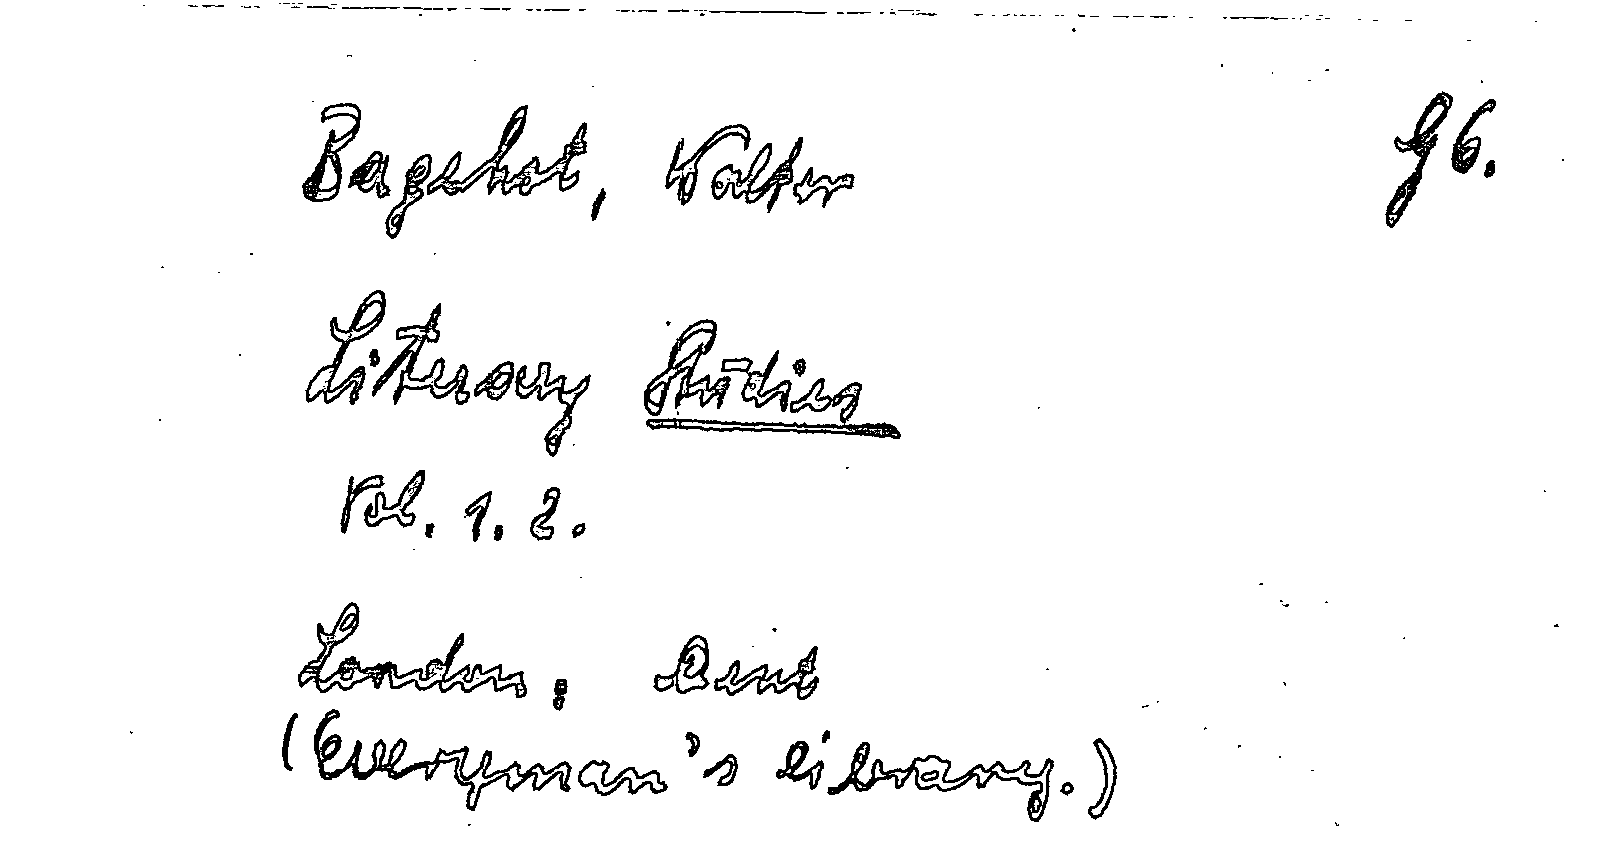 Bagehot, Walter G 6.
Literary Studies
Vol. 1. 2.
London: Dent
(Everyman's library.)